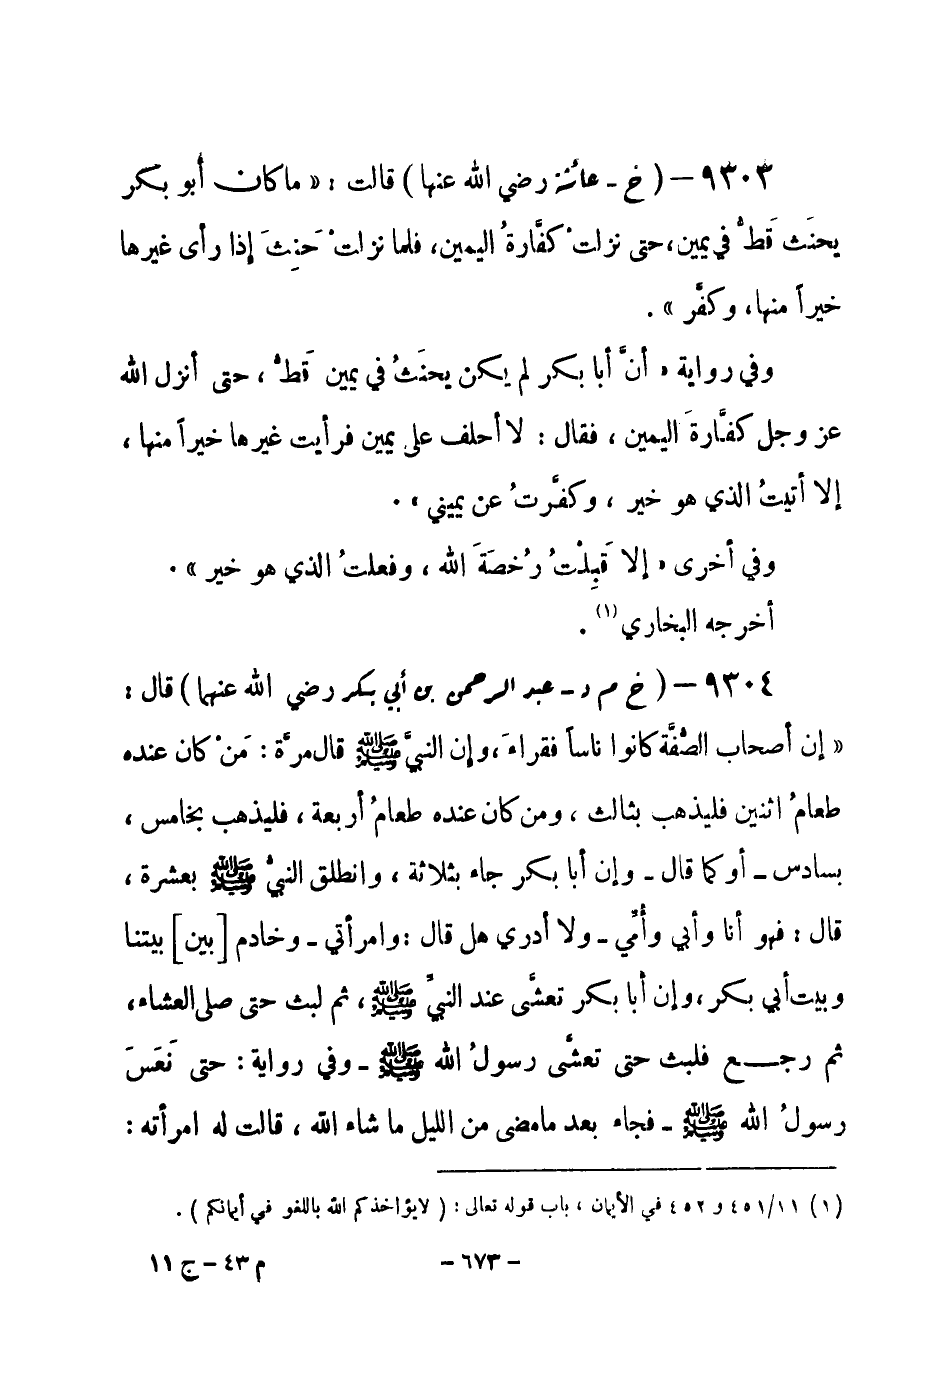 ٩٣٠٣ – ( خ - عائشة رضي الله عنها ) قالت : « ما كان أبو بكر
يحنَث قَطُّ في يمين ، حتى نزلتْ كفَّارةُ اليمين ، فلما نزلتْ حَنِثَ إذا رأى غيرها
خيراً منها ، وكفَّر » .
وفي رواية « أنَّ أبا بكر لم يكن يحنَثُ في يمين قَطُّ ، حتى أنزل الله
عز وجل كفَّارةَ اليمين ، فقال : لا أحلف على يمين فرأيت غيرها خيراً منها ،
إلا أتيتُ الذي هو خير ، وكفَّرتُ عن يميني » .
وفي أخرى « إلا قَبِلْتُ رُخصَةَ الله ، وفعلتُ الذي هو خير » .
أخرجه البخاري (١) .
٩٣٠٤ – ( خ م د - عبد الرحمن بن أبي بكر رضي الله عنهما ) قال :
« إن أصحاب الصُّفَّة كانوا ناساً فقراءَ ، وإن النبيَّ ﷺ قال مرَّة : مَنْ كان عنده
طعامُ اثنين فليذهب بثالث ، ومن كان عنده طعامُ أربعة ، فليذهب بخامس ،
بسادس - أو كما قال - وإن أبا بكر جاء بثلاثة ، وانطلق النبيُّ ﷺ بعشرة ،
قال : فهو أنا وأبي وأُمِّي - ولا أدري هل قال : وامرأتي - وخادم [بين] بيتنا
وبيت أبي بكر ، وإن أبا بكر تعشَّى عند النبيِّ ﷺ ، ثم لبث حتى صلى العشاء ،
ثم رجع فلبث حتى تعشَّى رسولُ الله ﷺ - وفي رواية : حتى نَعَسَ
رسولُ الله ﷺ - فجاء بعد ما مضى من الليل ما شاء الله ، قالت له امرأته :
(١) ٤٥١/١١ و ٤٥٢ في الأيمان ، باب قوله تعالى : ( لا يؤاخذكم الله باللغو في أيمانكم ) .
- ٦٧٣ -
م ٤٣ – ج ١١